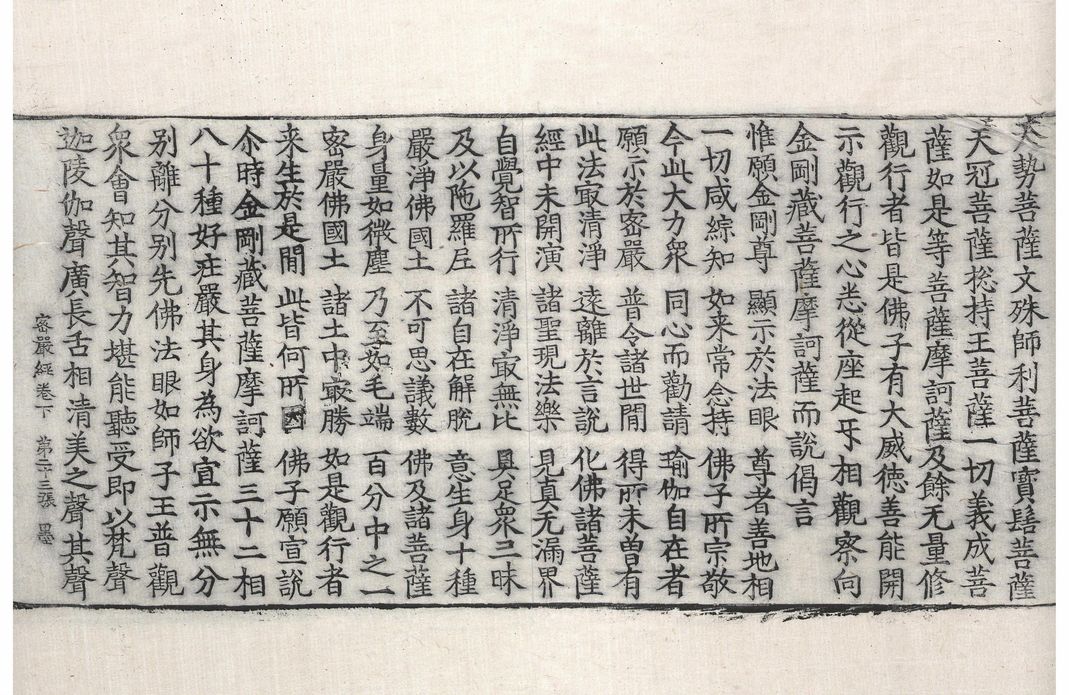 大勢菩薩文殊師利菩薩寶髻菩薩
天冠菩薩揔持王菩薩一切義成菩
薩如是等菩薩摩訶薩及餘无量修
觀行者皆是佛子有大威德善能開
示觀行之心悉從座起㸦相觀察向
金剛藏菩薩摩訶薩而說偈言
惟願金剛尊 顯示於法眼 尊者善地相
一切咸綜知 如来常念持 佛子所宗敬
今此大力衆 同心而勸請 瑜伽自在者
願示於密嚴 普令諸世閒 得所未曽有
此法㝡清淨 遠離於言說 化佛諸菩薩
經中未開演 諸聖現法樂 見真无漏界
自覺智所行 清淨㝡無比 具足衆三昧
及以陁羅𡰱 諸自在解脫 意生身十種
嚴淨佛國土 不可思議數 佛及諸菩薩
身量如微塵 乃至如毛端 百分中之一
密嚴佛國土 諸土中㝡勝 如是觀行者
来生於是閒 此皆何所因 佛子願宣說
尒時金剛藏菩薩摩訶薩三十二相
八十種好庄嚴其身為欲宣示無分
别離分别先佛法眼如師子王普觀
衆會知其智力堪能聽受即以梵聲
迦陵伽聲廣長舌相清美之聲其聲
密嚴經卷下 第二十三張 墨